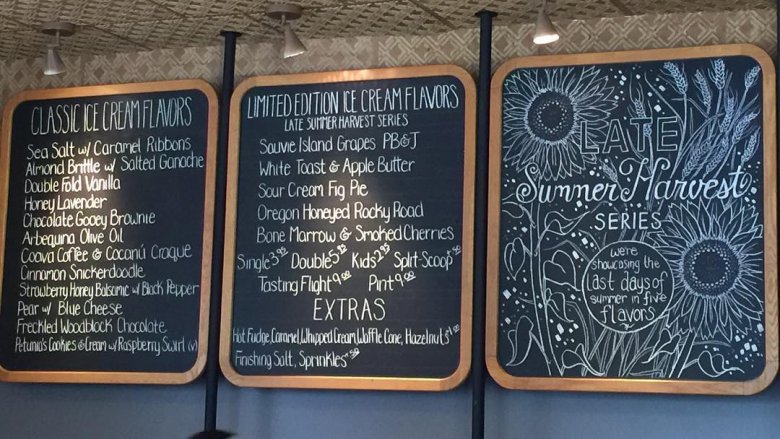 CLASSIC ICE CREAM FLAVORS
Sea Salt w/ Caramel Ribbons
Almond Brittle w/ Salted Ganache
Double Fold Vanilla
Honey Lavender
Chocolate Gooey Brownie
Arbequina Olive Oil
Coava Coffee & Cocanú Craque
Cinnamon Snickerdoodle
Strawberry Honey Balsamic w/ Black Pepper
Pear w/ Blue Cheese
Freckled Woodblock Chocolate
Petunia's Cookies & Cream w/ Raspberry Swirl (v)
LIMITED EDITION ICE CREAM FLAVORS
LATE SUMMER HARVEST SERIES
Sauvie Island Grapes PB&J
White Toast & Apple Butter
Sour Cream Fig Pie
Oregon Honeyed Rocky Road
Bone Marrow & Smoked Cherries
Single Double Kids Split-Scoop
Tasting Flight 9.00 Pint 9.00
EXTRAS
Hot Fudge, Caramel, Whipped Cream, Waffle Cone, Hazelnuts
Finishing Salt, Sprinkles
LATE
Summer Harvest
SERIES
we're
showcasing the
last days of
summer in five
flavors.